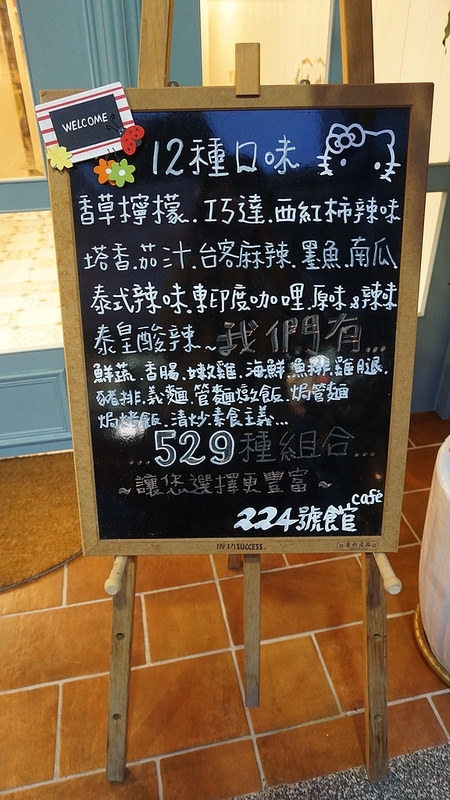 WELCOME
12種口味
香草檸檬..巧達.西紅柿辣味
塔香.茄汁.台客麻辣.墨魚.南瓜
泰式辣味.東印度咖哩.原味&辣味
泰皇酸辣~我們有...
鮮蔬.香腸.嫩雞.海鮮.魚排.雞腿.
豬排.義麵.管麵.燉飯.焗管麵
焗烤飯.清炒.素食主義...
...529種組合...
~讓您選擇更豐富~
café
224號食官
成功SUCCESS